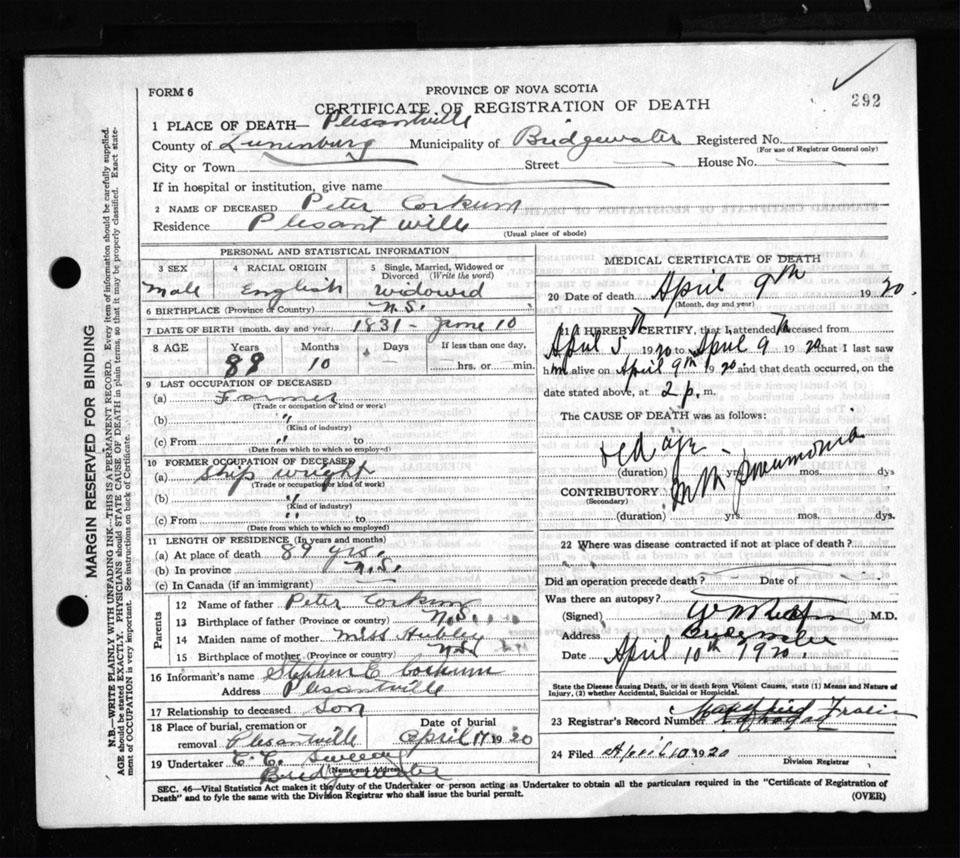 292
FORM 6
PROVINCE OF NOVA SCOTIA
CERTIFICATE OF REGISTRATION OF DEATH
1 PLACE OF DEATH— Plesantville
County of Lunenburg Municipality of Bridgewater Registered No.
(For use of Registrar General only)
City or Town Street House No.
If in hospital or institution, give name
2 NAME OF DECEASED Peter Corkum
Residence Plesant ville
(Usual place of abode)
PERSONAL AND STATISTICAL INFORMATION
3 SEX 4 RACIAL ORIGIN 5 Single, Married, Widowed or Divorced (Write the word)
Male English Widowed
6 BIRTHPLACE (Province or Country) N.S.
7 DATE OF BIRTH (month, day and year) 1831 - June 10
8 AGE Years Months Days If less than one day,
88 10 hrs. or min.
9 LAST OCCUPATION OF DECEASED
(a) Farmer
(Trade or occupation or kind or work)
(b) "
(Kind of industry)
(c) From " to
(Date from which to which so employed)
10 FORMER OCCUPATION OF DECEASED
(a) Ship wright
(Trade or occupation or kind or work)
(b) "
(Kind of industry)
(c) From " to
(Date from which to which so employed)
11 LENGTH OF RESIDENCE (In years and months)
(a) At place of death 89 yrs.
(b) In province N.S.
(c) In Canada (if an immigrant)
Parents
12 Name of father Peter Corkum
13 Birthplace of father (Province or country) N.S.
14 Maiden name of mother Miss Hubley
15 Birthplace of mother (Province or country) N.S.
16 Informant's name Stephen C Corkum
Address Plesantville
17 Relationship to deceased Son
18 Place of burial, cremation or Date of burial
removal Plesantville April 11 1920
19 Undertaker C. C.
(Name and Address)
Bridgewater
MEDICAL CERTIFICATE OF DEATH
20 Date of death April 9th 1920.
(Month, day and year)
21 I HEREBY CERTIFY, that I attended deceased from
April 5th 1920 to April 9th 1920 that I last saw
him alive on April 9th 1920 and that death occurred, on the
date stated above, at 2 p. m.
The CAUSE OF DEATH was as follows:
Old age -
(duration) yrs. mos. dys
CONTRIBUTORY pneumonia
(Secondary)
(duration) yrs. mos. dys.
22 Where was disease contracted if not at place of death?
Did an operation precede death? Date of
Was there an autopsy?
(Signed) M.D.
Address Bridgewater
Date April 10th 1920.
State the Disease causing Death, or in death from Violent Causes, state (1) Means and Nature of
Injury, (2) whether Accidental, Suicidal or Homicidal.
23 Registrar's Record Number
24 Filed April 10 1920
Division Registrar
SEC. 46—Vital Statistics Act makes it the duty of the Undertaker or person acting as Undertaker to obtain all the particulars required in the "Certificate of Registration of
Death" and to fyle the same with the Division Registrar who shall issue the burial permit.
(OVER)
MARGIN RESERVED FOR BINDING
N.B.—WRITE PLAINLY WITH UNFADING INK—THIS IS A PERMANENT RECORD. Every item of information should be carefully supplied.
AGE should be stated EXACTLY. PHYSICIANS should STATE CAUSE OF DEATH in plain terms, so that it may be properly classified. Exact state-
ment of OCCUPATION is very important. See instructions on back of Certificate.